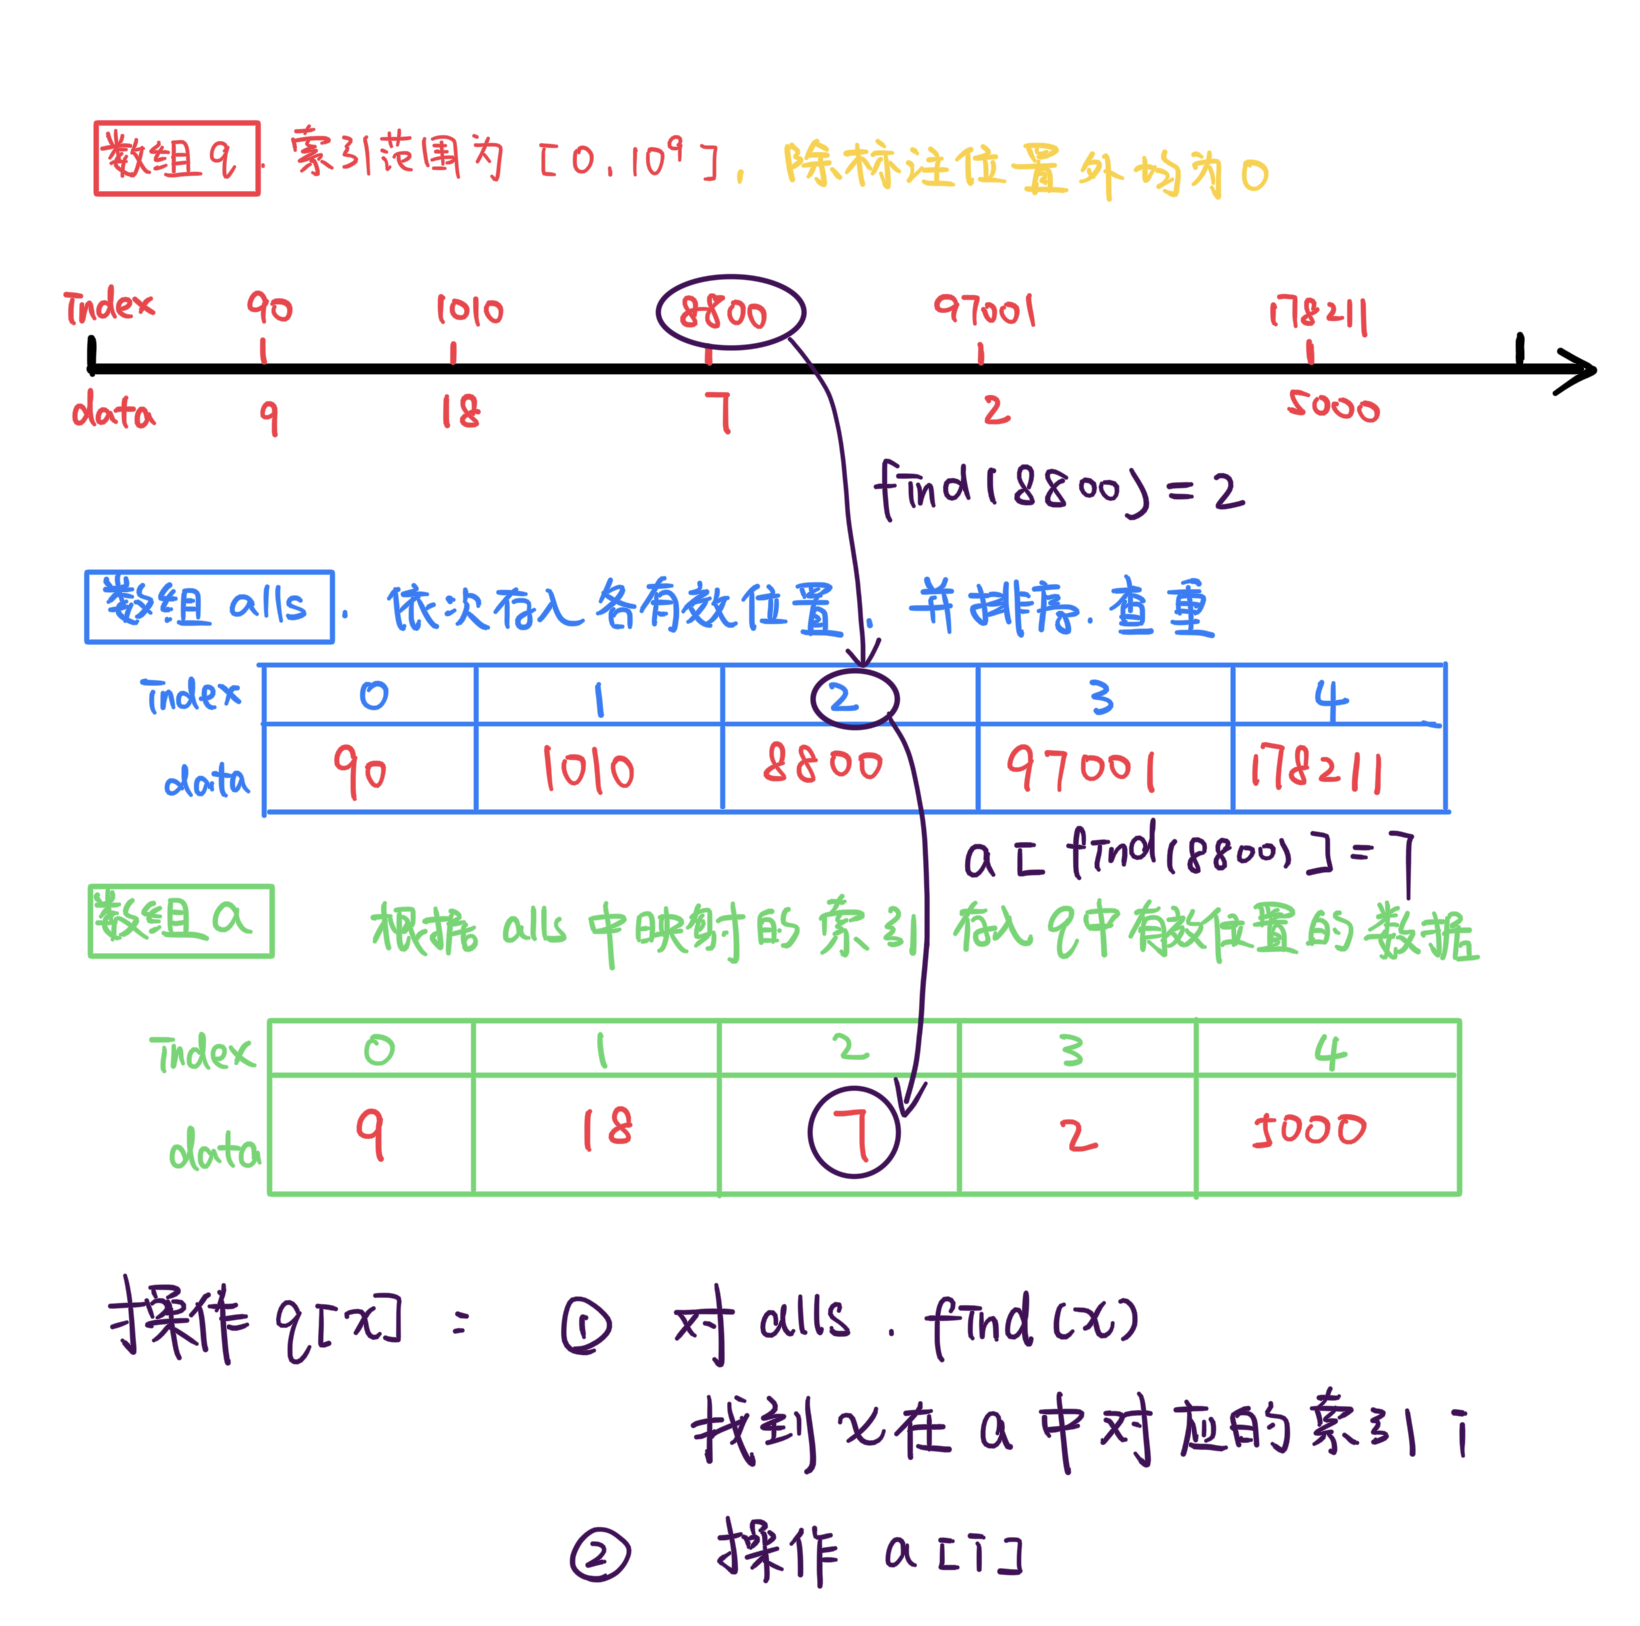 数组q. 索引范围为 [0, 10⁹], 除标注位置外均为0
index 90 1010 8800 97001 178211
data 9 18 7 2 5000
find(8800) = 2
数组 alls. 依次存入各有效位置. 并排序.查重
index 0 1 2 3 4
data 90 1010 8800 97001 178211
a[find(8800)] = 7
数组 a 根据 alls 中映射的索引 存入 q中有效位置的数据
index 0 1 2 3 4
data 9 18 7 2 5000
操作 q[x] : ① 对 alls. find(x)
找到 x在 a 中对应的索引 i
② 操作 a[i]